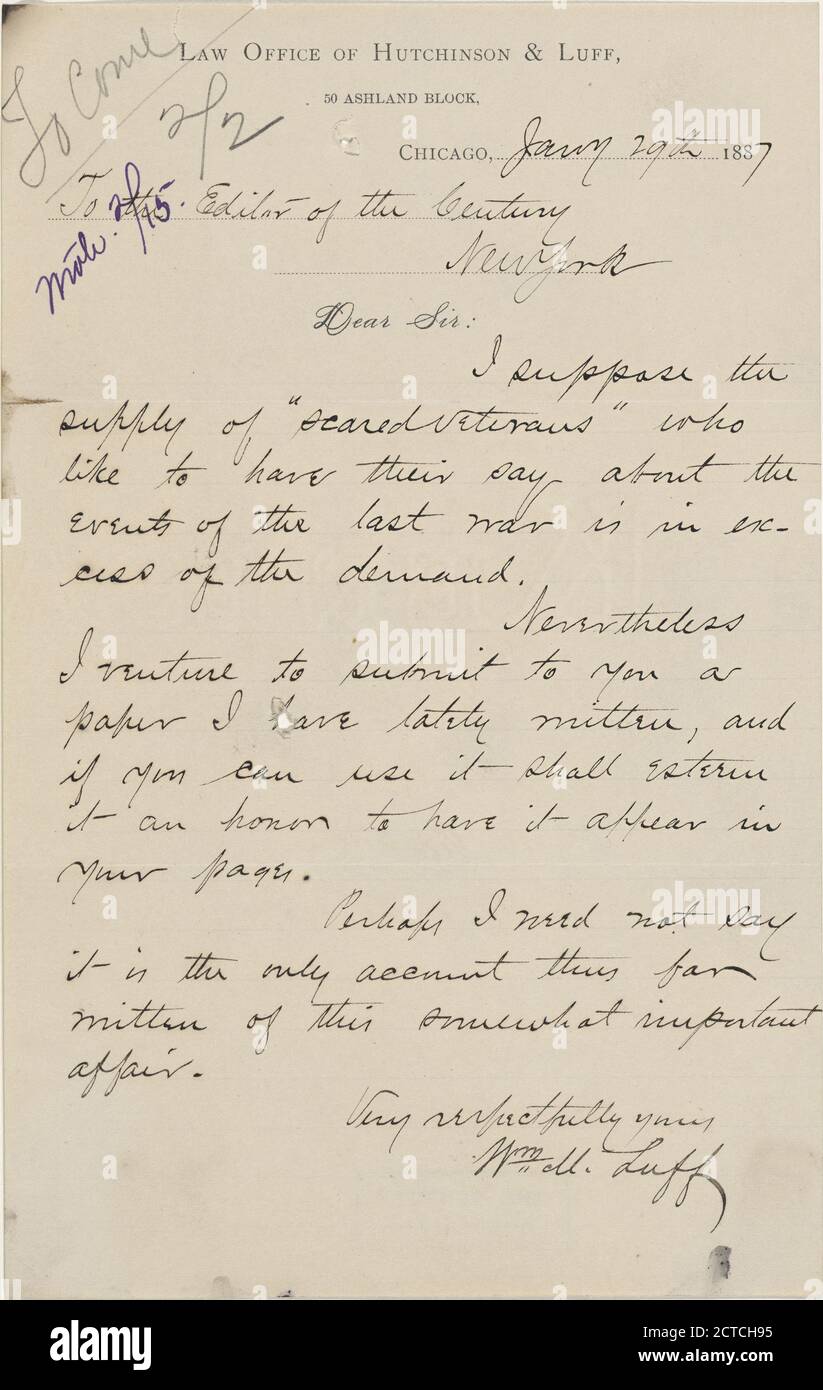 To Come
2/2
LAW OFFICE OF HUTCHINSON & LUFF,
50 ASHLAND BLOCK,
CHICAGO, Jany 29th 1887
To the Editor of the Century
2/15.
New York
Dear Sir:
I suppose the
supply of "scared veterans" who
like to have their say about the
events of the last war is in ex-
cess of the demand.
Nevertheless
I venture to submit to you a
paper I have lately written, and
if you can use it shall esteem
it an honor to have it appear in
your pages.
Perhaps I need not say
it is the only account thus far
written of this somewhat important
affair.
Very respectfully yours
Wm. M. Luff
alamy
alamy
alamy
a
alamy
Image ID: 2CTCH95
www.alamy.com